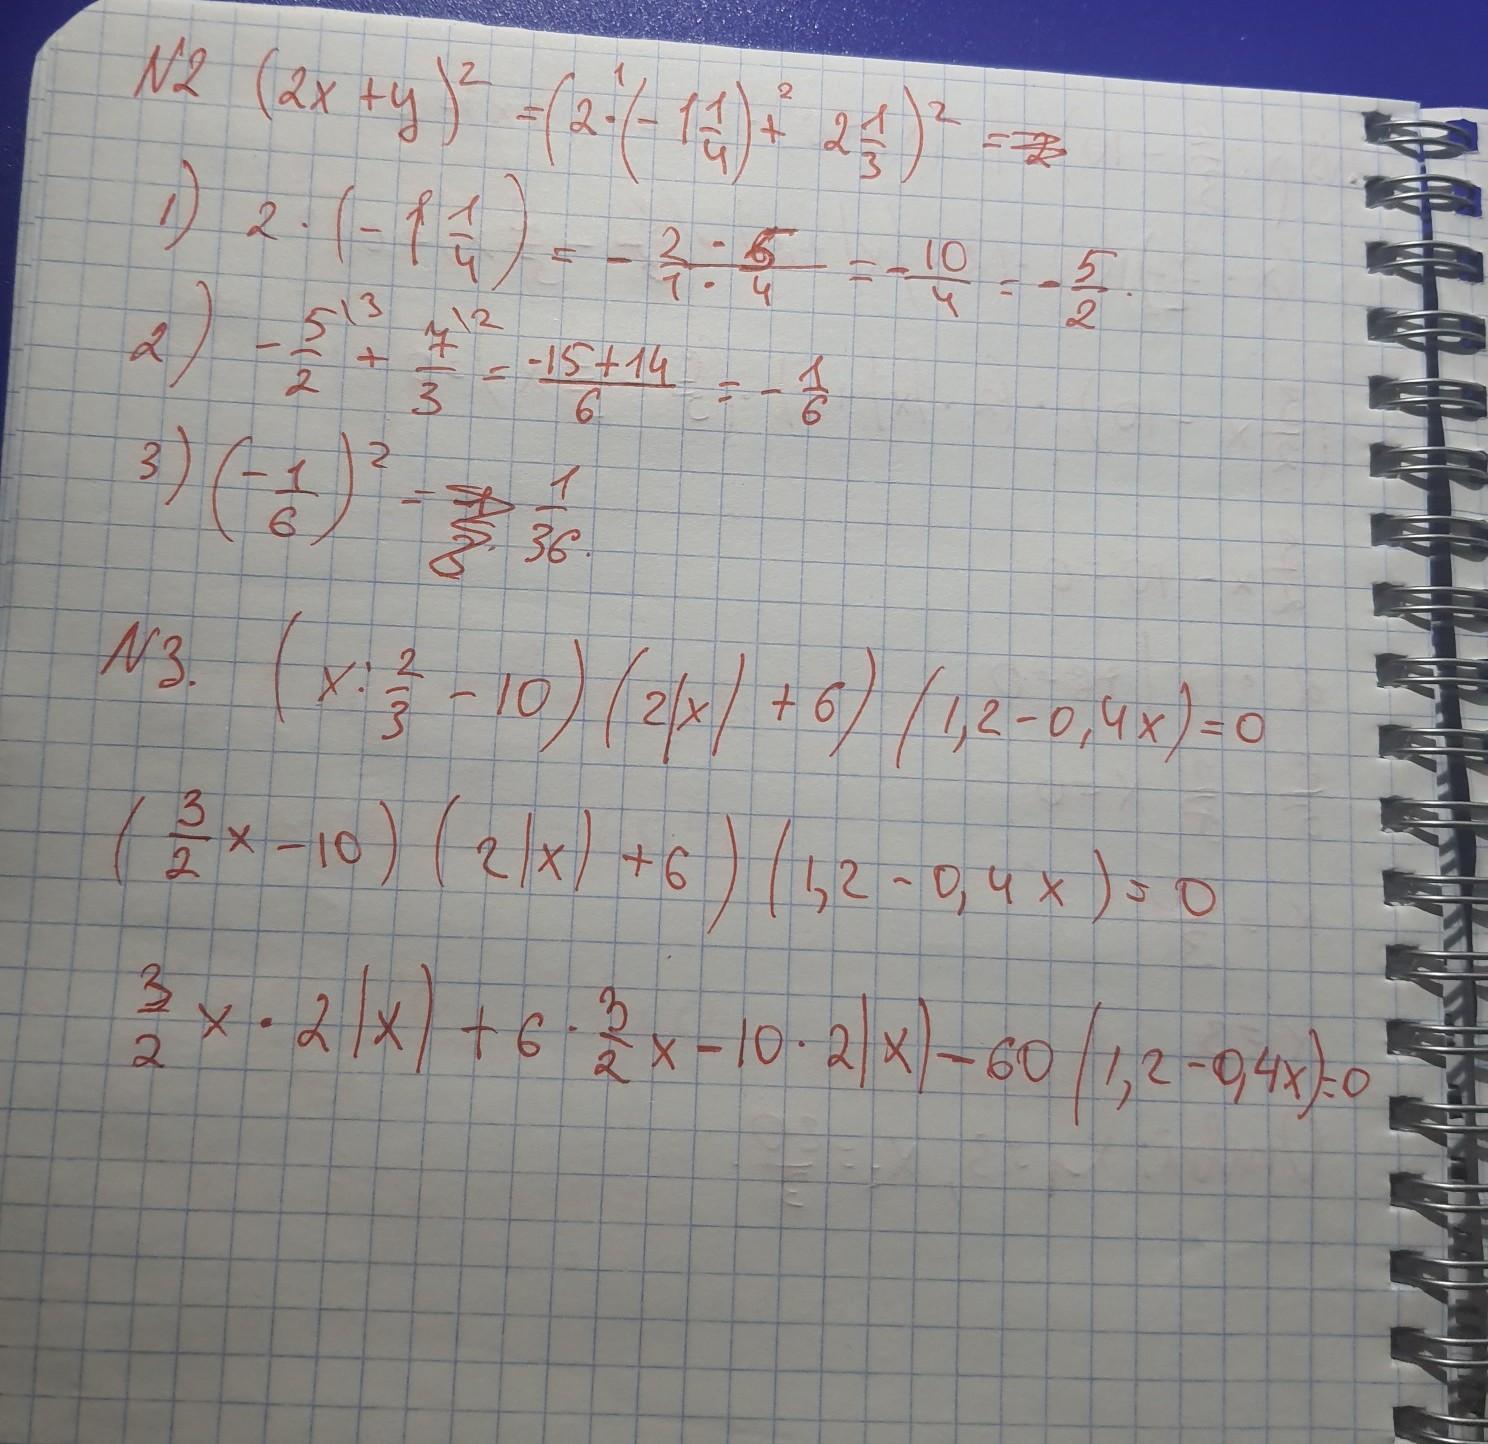 N2 (2x+y)² = (2·¹(-1 1/4)+² 2 1/3)² =
1) 2·(-1 1/4) = - 2·5/1·4 = - 10/4 = - 5/2.
2) - 5/2 \3 + 7/3 \2 = -15+14/6 = - 1/6
3) (-1/6)² = 1/36.
N3. (x : 2/3 - 10) (2|x| + 6) (1,2-0,4x)=0
(3/2 x - 10) (2|x| + 6) (1,2-0,4x)=0
3/2 x · 2|x| + 6 · 3/2 x - 10 · 2|x| - 60 (1,2-0,4x)=0